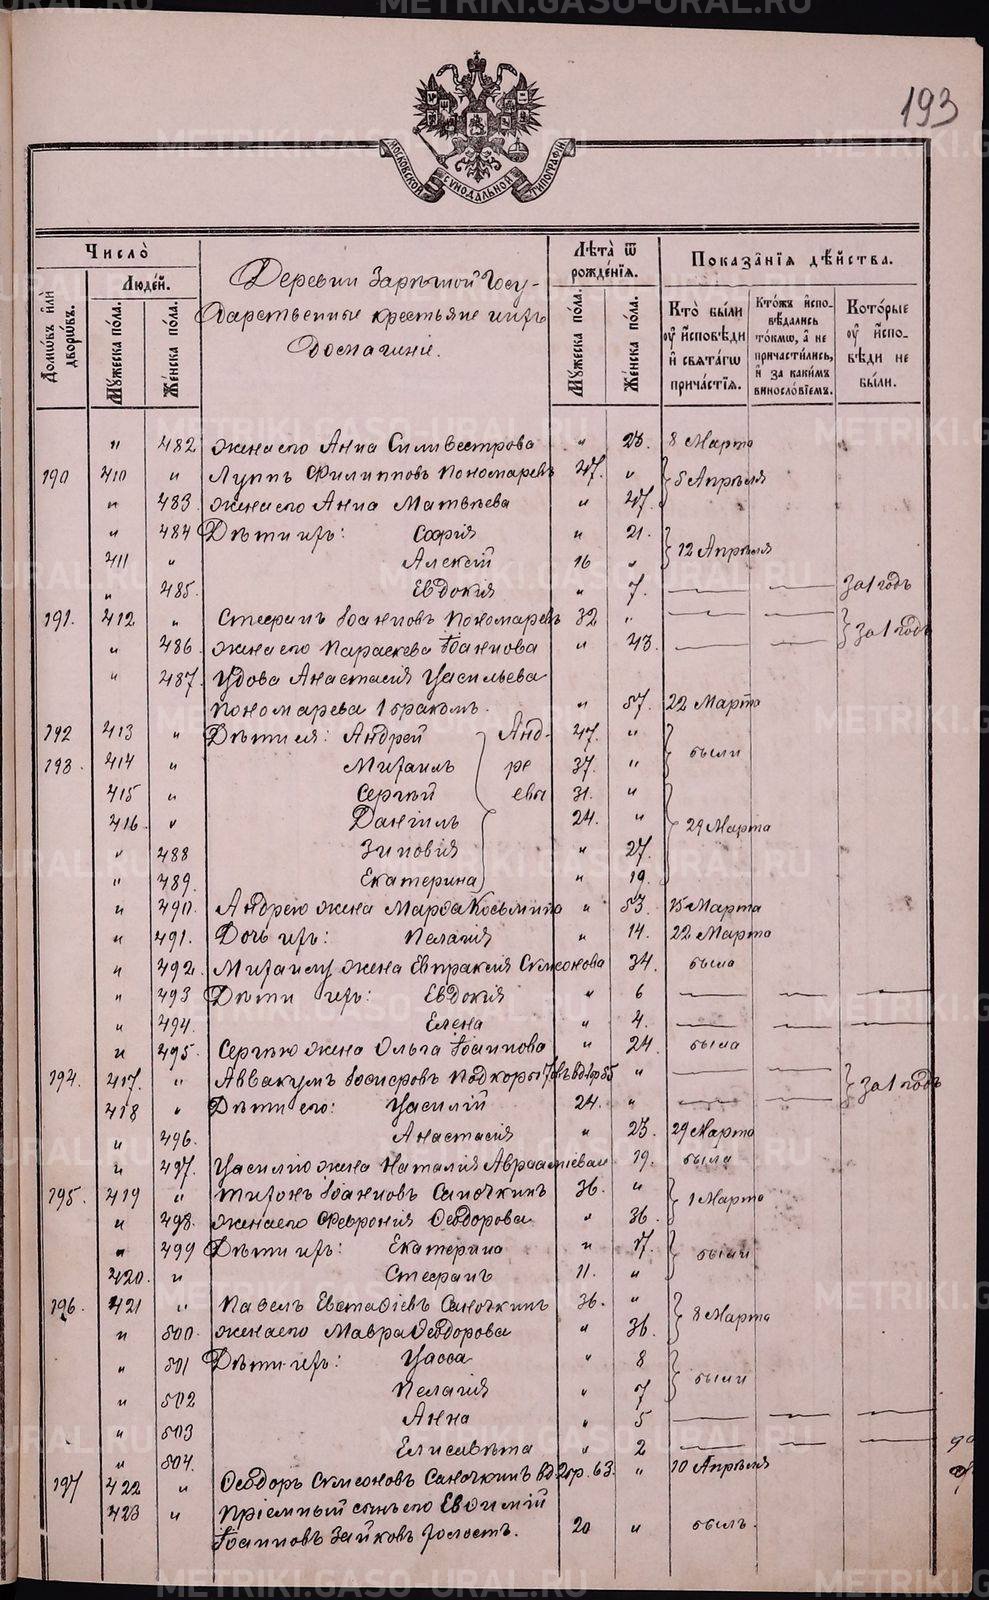 193
МОСКОВСКОЙ СѴНОДАЛЬНОЙ ТИПОГРАФІИ
Число̀
Домѡвъ и҆лѝ дворѡвъ.
Люде́й.
Мꙋ́жеска по́ла.
Же́нска по́ла.
Деревни Зарѣчной Госу-
дарственные крестьяне и ихъ
домашніе.
Лѣта̀ ѿ рожде́нїѧ.
Мꙋ́жеска по́ла.
Же́нска по́ла.
Показа̂нїѧ дѣ́йства.
Кто̀ бы́ли ᲂу҆ и҆́сповѣди и҆ свѧта́гѡ прича́стїѧ.
Кто́жъ и҆спо-вѣ́дались то́кмѡ, а҆ не причасти́лись, и҆ за каки́мъ винослѡ́вїемъ.
Кото́рые ᲂу҆ и҆́спо-вѣди не бы́ли.
" 482 жена его Анна Силивестрова " 23. 8 Марта
190 410 " Луппъ Филипповъ Пономаревъ 47. " 5 Апрѣля
" 483. жена его Анна Матвѣева " 47.
" 484 Дѣти ихъ: Софія " 21. 12 Апрѣля
411 " Алексій 16 "
" 485. Евдокія " 7. За 1 годъ
191. 412 " Стефанъ Іоанновъ Пономаревъ 32 " За 1 годъ
" 486. жена его Параскева Іоаннова " 43.
" 487. Удова Анастасія Васильева
Пономарева 1 бракомъ. " 57. 22 Марта
192 413 " Дѣти ея: Андрей Анд- 47. " были
193. 414 " Михаилъ ре 37. "
415 " Сергѣй евы 31. " 29 Марта
416. " Даніилъ 24. "
" 488 Зиновія " 27.
" 489. Екатерина " 19.
" 490. Андрею жена Марѳа Косьмина " 53. 15 Марта
" 491. Дочь ихъ: Пелагія " 14. 22 Марта
" 492. Михаилу жена Евпраксія Симеонова 34. была
" 493 Дѣти ихъ: Евдокія " 6
" 494. Елена " 4.
" 495. Сергѣю жена Ольга Іоаннова " 24. была
194. 417. " Аввакумъ Іосифовъ Подкорытовъ вд. 1 бр 55 " За 1 годъ
418 " Дѣти его: Василій 24. "
" 496. Анастасія " 23. 29 Марта
" 497. Василію жена Наталія Авраамieва " 19. была
195. 419 " Тихонъ Іоанновъ Саночкинъ 36. " 1 Марта
" 498. жена его Феврония Ѳеодорова " 36.
" 499 Дѣти ихъ: Екатерина " 17. были
420. " Стефанъ 11. "
196. 421 " Павелъ Евстафіевъ Саночкинъ 36. " 8 Марта
" 500. жена его Мавра Ѳеодорова " 36.
" 501 Дѣти ихъ: Васса " 8 были
" 502 Пелагія " 7
" 503 Анна " 5
" 504. Елисавета " 2
197 422 " Ѳеодоръ Симеоновъ Саночкинъ вд. 2 бр. 63. " 10 Апрѣля
423 " Пріемный сынъ его Евѳимій
Іоанновъ Зайковъ холостъ. 20 " былъ.